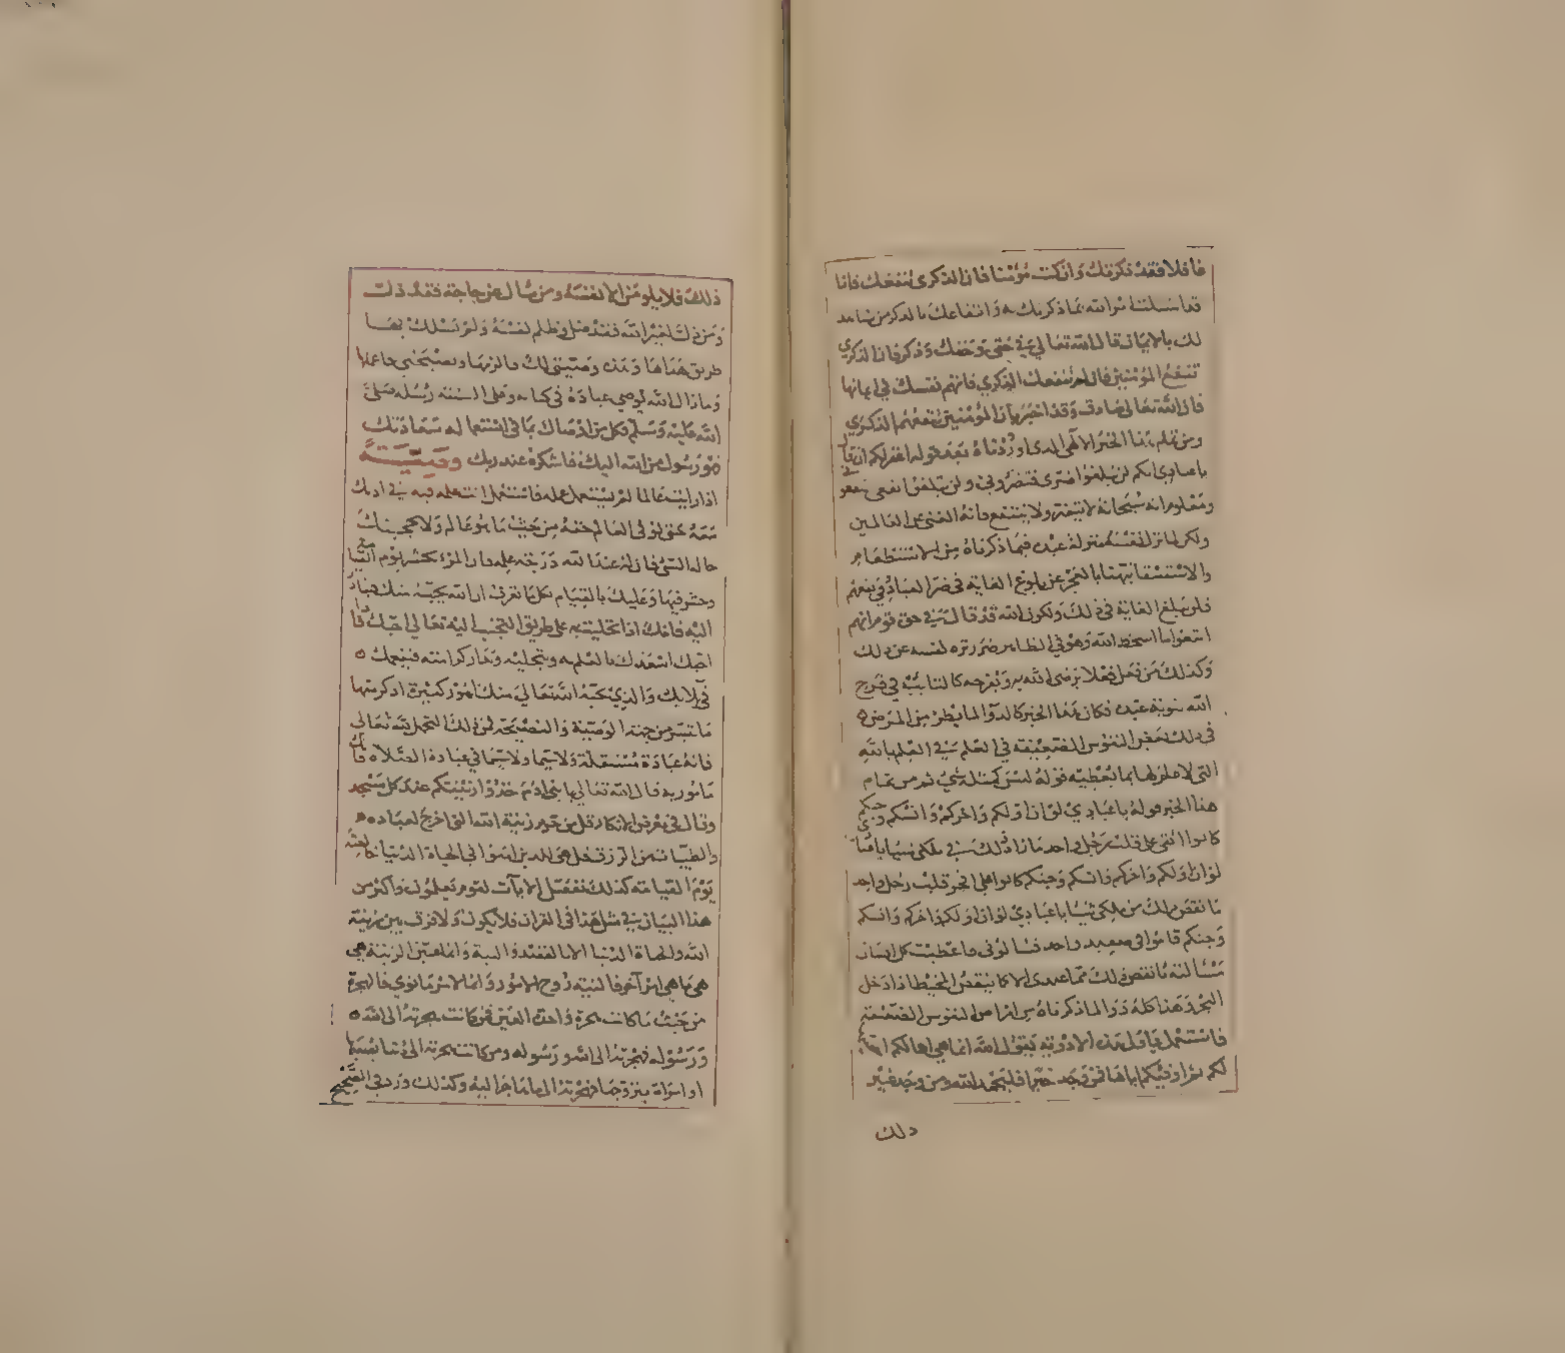 غافلا فقد ذكرتك وان كنت مؤمنا فان الذكرى تنفعك فانا
قد امتثلت امر الله بما ذكرتك به وانتفاعك بالذكر من شاهد
لك بالايمان قال الله تعالى في حقي وحقك وذكر فان الذكرى
تنفع المؤمنين فان لم تنفعك الذكرى فاتهم نفسك في ايمانها
فان الله تعالى صادق وقد اخبر بان المؤمنين تنفعهم الذكرى
ومن تمام هذا الخبر الالهي الذي اوردناه بعد قوله اغفر لكم ان قال
يا عبادي انكم لن تبلغوا ضري فتضروني ولن تبلغوا نفعي فتنفعوني
ومعلوم انه سبحانه لا يتضرر ولا ينتفع فانه الغني عن العالمين
ولكن لما نزل نفسه منزلة عبده فيما ذكرناه من الاستطعام
والاستسقاء نبهنا بالعجز عن بلوغ الغاية في ضر العباد في نفعهم
فلن نبلغ الغاية في ذلك ولكون الله قد قال في حق قوم انهم
اتبعوا ما اسخط الله وهو في الظاهر ضرر نزه نفسه عن ذلك
وكذلك من فعل فعلا يرضى الله به ويفرحه كالتائب في فرح
الله بتوبة عبده فكان هذا الخبر كالدواء لما يطرأ من المرض
في ذلك لبعض النفوس الضعيفة في العلم في العلم بالله
التي لا علم لها بما يعطيه قوله ليس كمثله شيء ثم من تمام
هذا الخبر قوله يا عبادي لو ان اولكم واخركم وانسكم وجنكم
كانوا على اتقى قلب رجل واحد ما زاد ذلك في ملكي شيئا يا عبادي
لو ان اولكم واخركم وانسكم وجنكم كانوا على افجر قلب رجل واحد
ما نقص ذلك من ملكي شيئا يا عبادي لو ان اولكم واخركم وانسكم
وجنكم قاموا في صعيد واحد فسالوني فاعطيت كل انسان
مسألته ما نقص ذلك مما عندي الا كما ينقص المخيط اذا دخل
البحر وهذا كله دواء لما ذكرناه من امراض النفوس الضعيفة
فاستعمل يا ولي هذه الادوية يقول الله انما هي اعمالكم احصيها
لكم ثم اوفيكم اياها فمن وجد خيرا فليحمد الله ومن وجد غير
ذلك
ذلك فلا يلومن الا نفسه ومن سال عن حاجة فقد ذل
ومن ذل لغير الله فقد ضل وظلم نفسه ولم يسلك بها
طريق هداها وهذه وصيتي لك فالزمها ونصيحتي فاعلمها
وما زال الله يوصي عباده في كتابه وعلى السنة رسله صلى
الله عليه وسلم فكل من اوصاك بما في استعماله سعادتك
فهو رسول من الله اليك فاشكره عند ربك وصية
اذا رايت عالما لم يستعمل علمه فاستعمل انت علمه فيه في ادبك
معه حتى توفي العالم حقه من حيث ما هو عالم ولا يحجبنك
حاله السيئ فان له عند الله درجة علمه فان المرء يحشر يوم القيامة مع
من احب
وعليك بالقيام بكل ما تعرف ان الله يحبه منك فبادر
اليه فانك اذا تحليت به على طريق التحبب اليه تعالى احبك واذا
احبك اسعدك بالعلم به وبتجليه وبدار كرامته فينعمك
في بلائك والذي يحبه الله تعالى منك امور كثيرة اذكر منها
ما تيسر من جهة الوصية والنصيحة فمن ذلك التجمل لله تعالى
فانه عبادة مستقلة ولا سيما ولا سيما في عبادة الصلاة فانك
مامور به قال الله تعالى يا بني ادم خذوا زينتكم عند كل مسجد
وقال في معرض الانكار قل من حرم زينة الله التي اخرج لعباده
والطيبات من الرزق قل هي للذين امنوا في الحياة الدنيا خالصة
يوم القيامة كذلك نفصل الايات لقوم يعلمون واكثر من
هذا البيان في مثل هذا في القران فلا يكون ولا فرق بين زينة
الله والحياة الدنيا الا بالقصد والنية وانما عين الزينة هي
هي ما هي امر اخر فالنية روح الامور وانما لامرء ما نوى فالهجرة
من حيث ما كانت هجرة واحدة العين فمن كانت هجرته الى الله
ورسوله فهجرته الى الله ورسوله ومن كانت هجرته الى دنيا يصيبها
او امراة يتزوجها فهجرته الى ما هاجر اليه وكذلك ورد في الصحيح